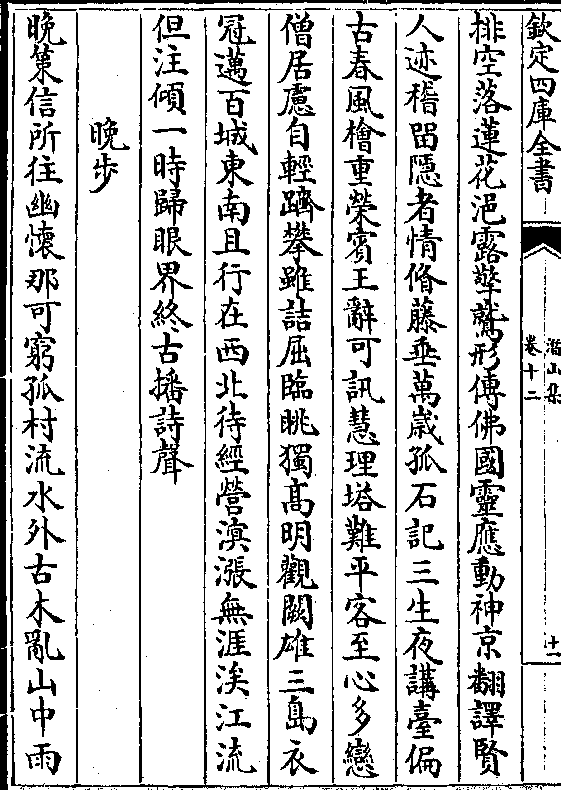 欽定四庫全書
潛山集
卷十二
十一
排空落蓮花浥露擎鷲形傳佛國靈應動神京翻譯賢
人迹稽留隱者情脩藤垂萬歲孤石記三生夜講臺偏
古春風檜重榮賓王辭可訊慧理塔難平客至心多戀
僧居慮自輕躋攀雖詰屈臨眺獨髙明觀闕雄三島衣
冠邁百城東南且行在西北待經營溟漲無涯涘江流
但注傾一時歸眼界終古播詩聲
晚步
晚策信所往幽懷那可窮孤村流水外古木亂山中雨